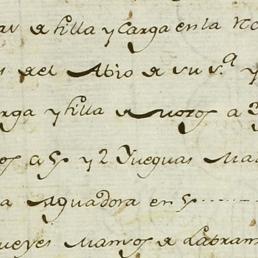 de silla y Carga en la No
del Abio de su s.ª y
rga y silla de Mozos a 3
os a 5 y 2 Yeguas Ma
a Aguadora en 5
ueyes Mansos de Labran